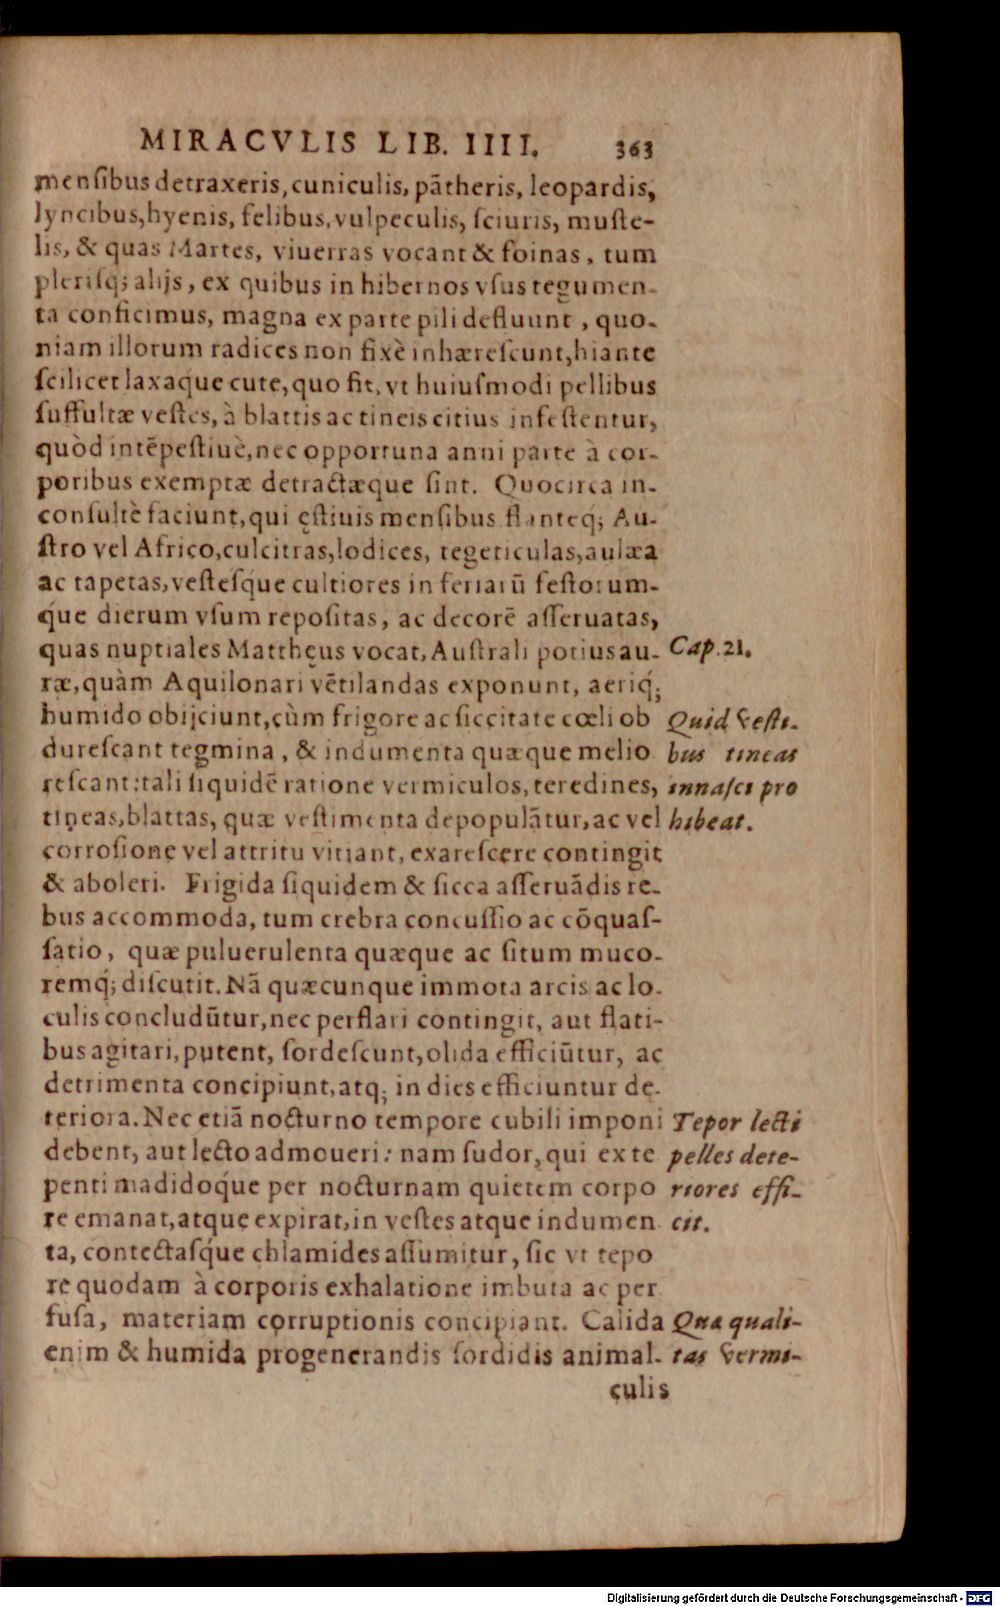 MIRACVLIS LIB. IIII. 363
mensibus detraxeris, cuniculis, pãtheris, leopardis,
lyncibus, hyenis, felibus, vulpeculis, sciuris, muste-
lis, & quas Martes, viuerras vocant & foinas, tum
plerisq; alijs, ex quibus in hibernos vsus tegumen-
ta conficimus, magna ex parte pili defluunt, quo-
niam illorum radices non fixè inhærescunt, hiante
scilicet laxaq́ue cute, quo fit, vt huiusmodi pellibus
suffultæ vestes, à blattis ac tineis citius infestentur,
quòd intẽpestiuè, nec opportuna anni parte à cor-
poribus exemptæ detractæque sint. Quocirca in-
consultè faciunt, qui ęstiuis mensibus flanteq́; Au-
stro vel Africo, culcitras, lodices, tegeticulas, aulæa
ac tapetas, vestesq́ue cultiores in feriarũ festorum-
q́ue dierum vsum repositas, ac decorẽ asseruatas,
quas nuptiales Matthęus vocat, Australi potius au-
ræ, quàm Aquilonari vẽtilandas exponunt, aeriq́;
humido obijciunt, cùm frigore ac siccitate cœli ob
durescant tegmina, & indumenta quæque melio
rescant: tali siquidẽ ratione vermiculos, teredines,
tineas, blattas, quæ vestimenta depopulãtur, ac vel
corrosione vel attritu vitiant, exarescere contingit
& aboleri. Frigida siquidem & sicca asseruãdis re-
bus accommoda, tum crebra concussio ac cõquas-
satio, quæ puluerulenta quæque ac situm muco-
remq́; discutit. Nã quæcunque immota arcis ac lo-
culis concludũtur, nec perflari contingit, aut flati-
bus agitari, putent, sordescunt, olida efficiũtur, ac
detrimenta concipiunt, atq; in dies efficiuntur de-
teriora. Nec etiã nocturno tempore cubili imponi
debent, aut lecto admoueri: nam sudor, qui ex te
penti madidoq́ue per nocturnam quietem corpo
re emanat, atque expirat, in vestes atque indumen
ta, contectasq́ue chlamides assumitur, sic vt tepo
re quodam à corporis exhalatione imbuta ac per
fusa, materiam corruptionis concipiant. Calida
enim & humida progenerandis sordidis animal-
culis
Cap. 21.
Quid vesti-
bus tineas
innasci pro
hibeat.
Tepor lecti
pelles dete-
riores effi-
cit.
Qua quali-
tas vermi-
Digitalisierung gefördert durch die Deutsche Forschungsgemeinschaft - DFG